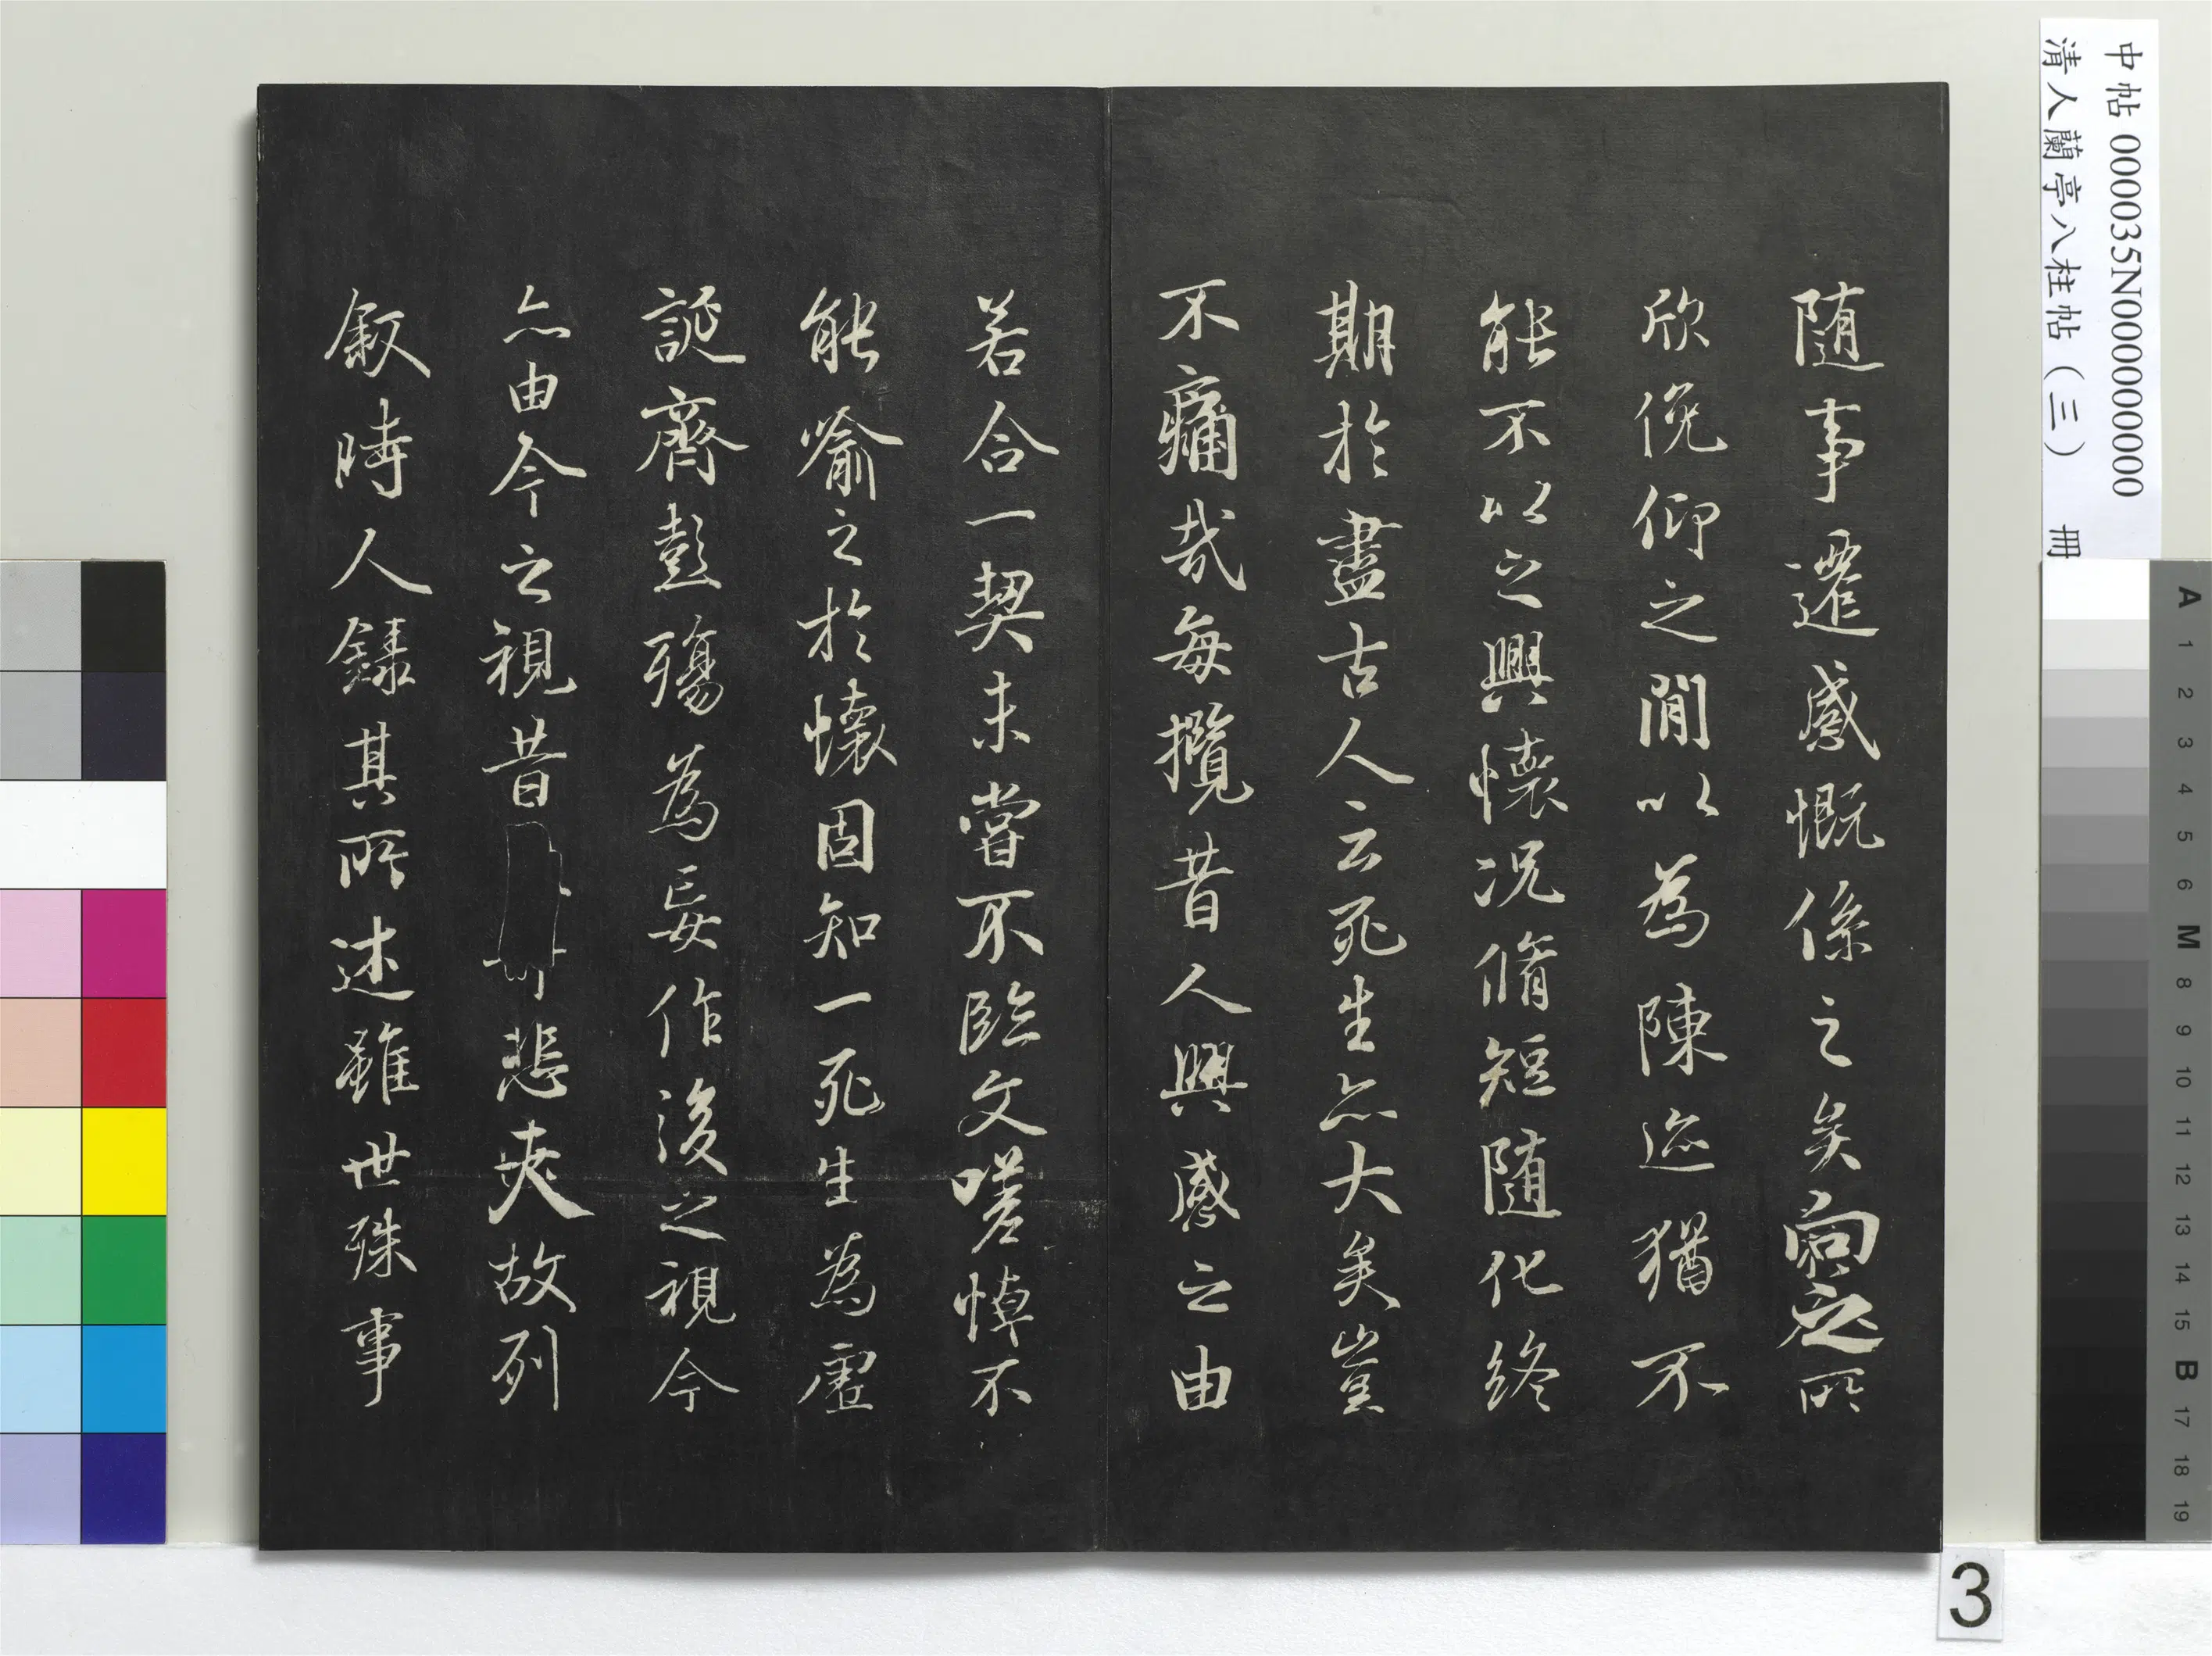 中帖 000035N000000000
清人蘭亭八柱帖（三） 冊
随事遷感慨係之矣向之所
欣俛仰之閒以為陳迹猶不
能不以之興懷況脩短隨化終
期於盡古人云死生亦大矣豈
不痛哉每攬昔人興感之由
若合一契未嘗不臨文嗟悼不
能喻之於懷固知一死生為虛
誕齊彭殤為妄作後之視今
亦由今之視昔悲夫故列
敘時人錄其所述雖世殊事
A 1 2 3 4 5 6 M 8 9 10 11 12 13 14 15 B 17 18 19
3